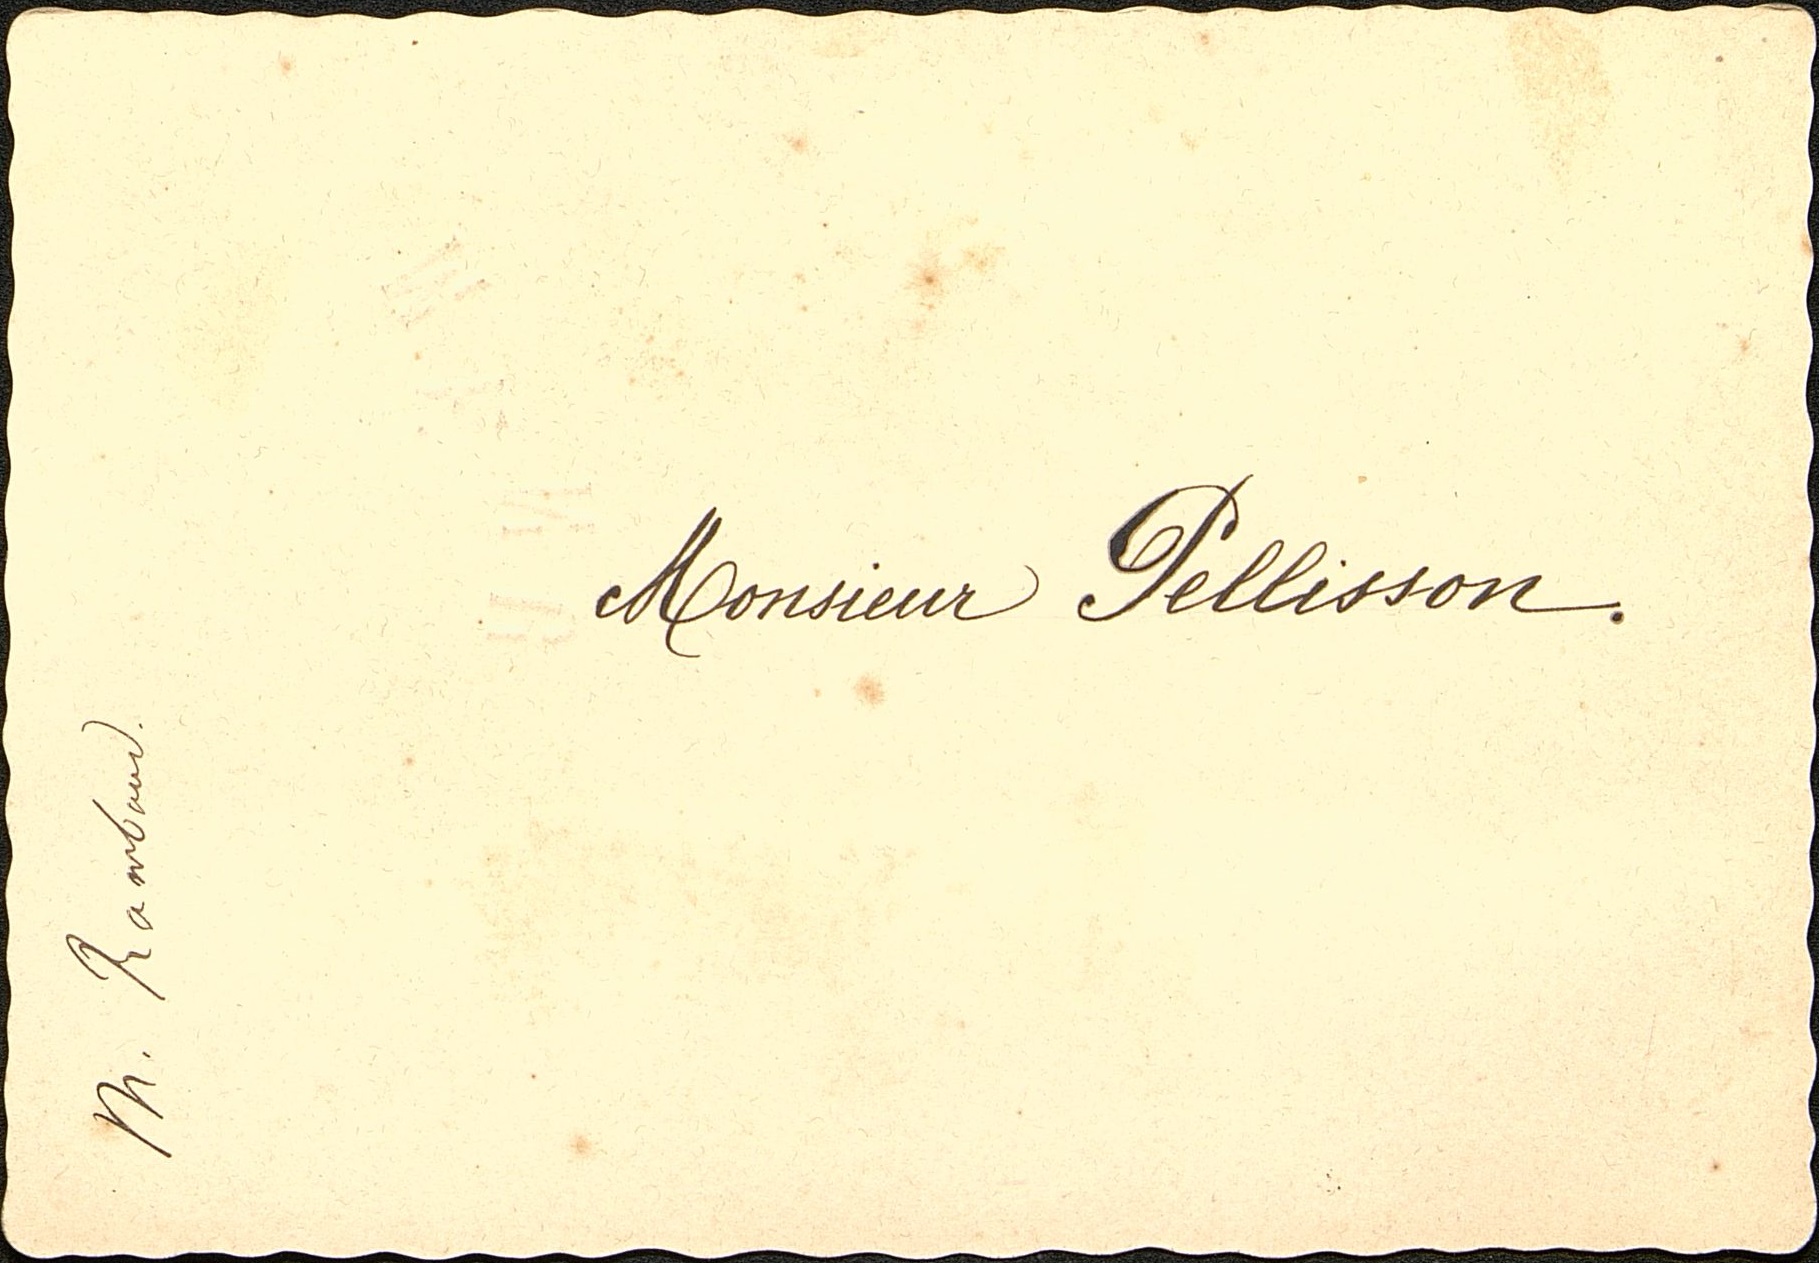 Monsieur Pellisson.
M. Rambaud.